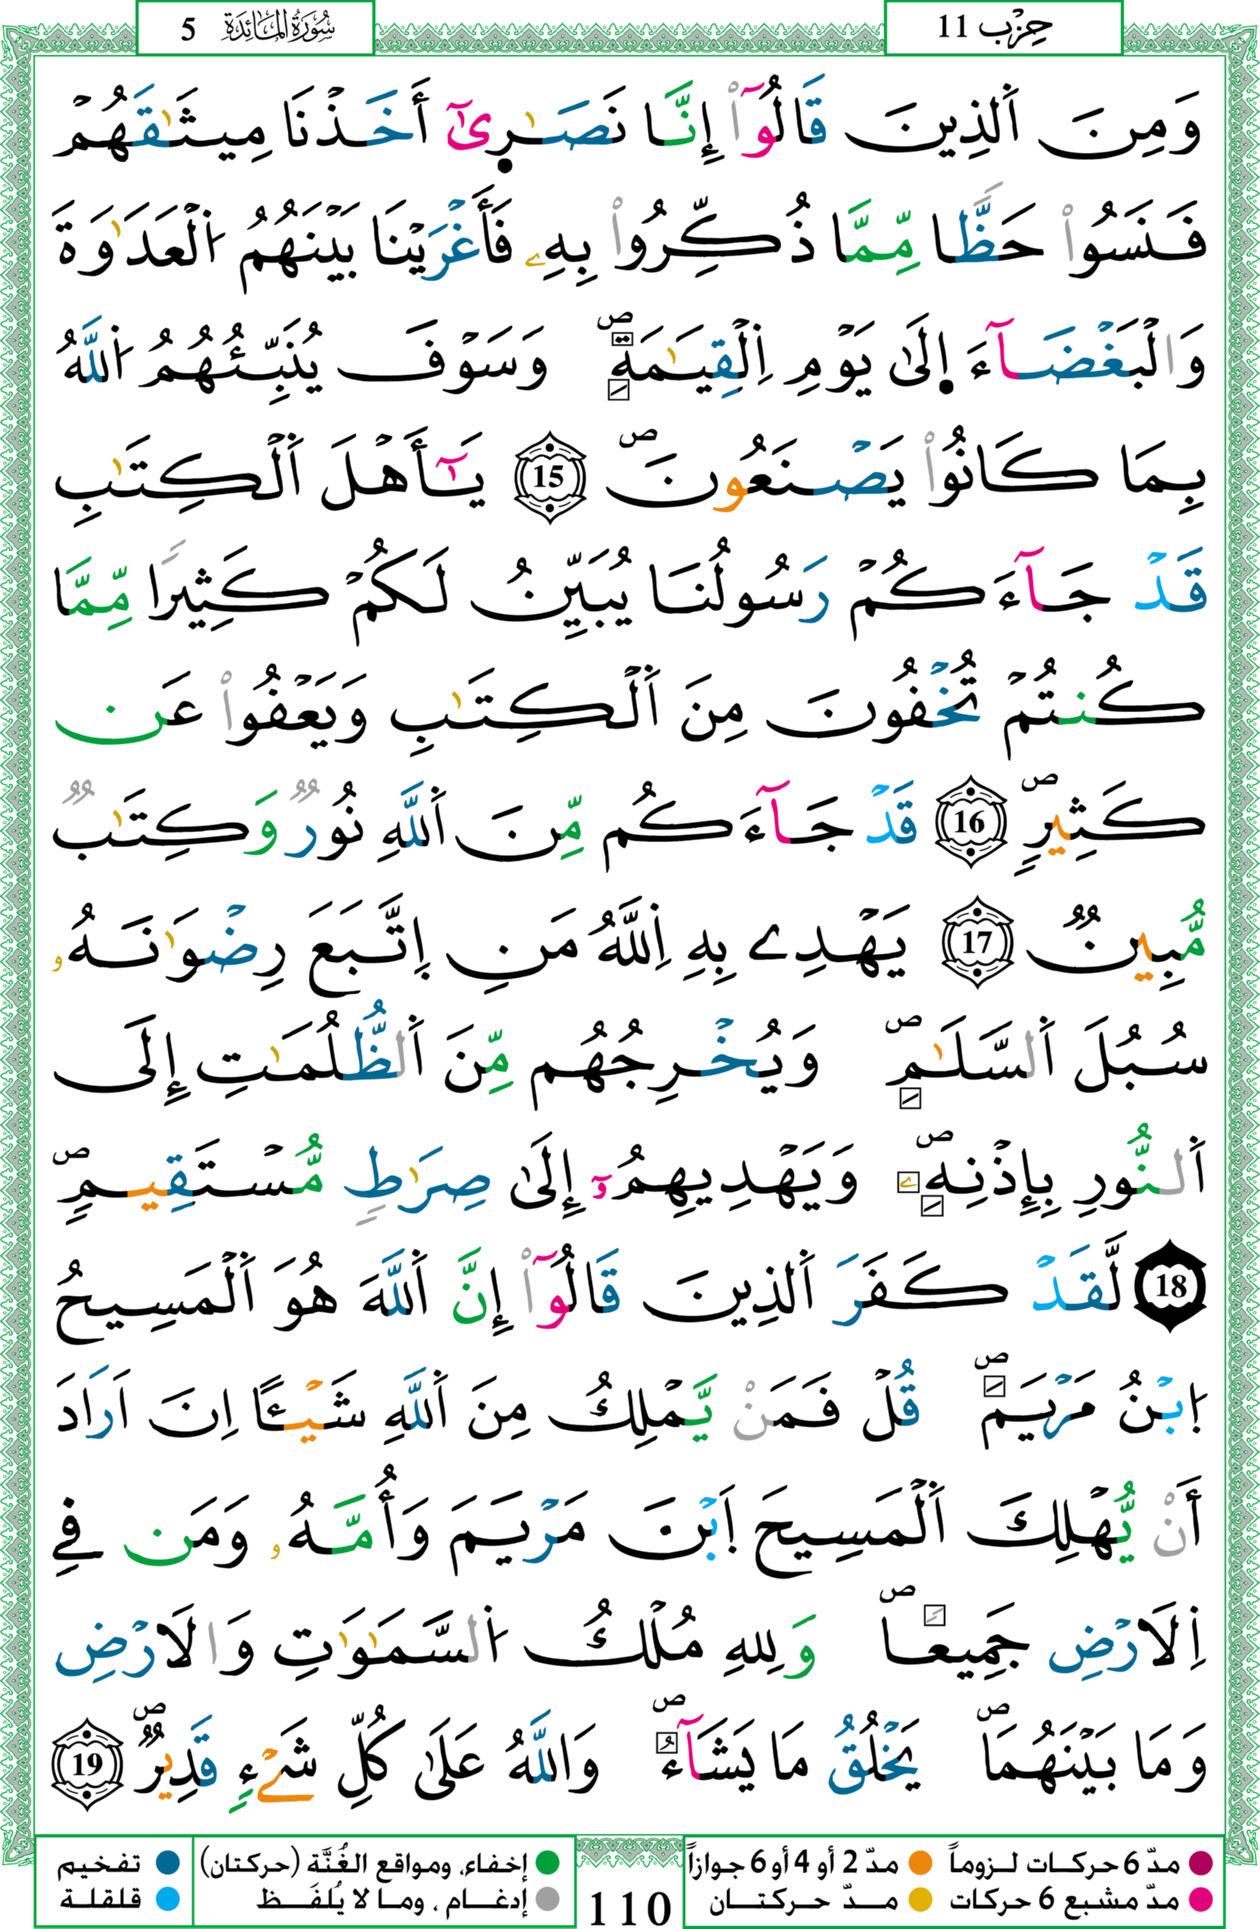 حِزْب 11
سُورَةُ الْمَائِدَة 5
وَمِنَ اَ۬لذِينَ قَالُوٓاْ إِنَّا نَصَٰر۪يٰٓ أَخَذْنَا مِيثَٰقَهُمْ
فَنَسُواْ حَظّاٗ مِّمَّا ذُكِّرُواْ بِهِۦ فَأَغْرَيْنَا بَيْنَهُمُ اُ۬لْعَدَٰوَةَ
وَالْبَغْضَآءَ ا۪لَىٰ يَوْمِ اِ۬لْقِيَٰمَةِۖ وَسَوْفَ يُنَبِّئُهُمُ اُ۬للَّهُ
بِمَا كَانُواْ يَصْنَعُونَۖ 15 يَٰٓأَهْلَ اَ۬لْكِتَٰبِ
قَدْ جَآءَكُمْ رَسُولُنَا يُبَيِّنُ لَكُمْ كَثِيراٗ مِّمَّا
كُنتُمْ تُخْفُونَ مِنَ اَ۬لْكِتَٰبِ وَيَعْفُواْ عَن
كَثِيرٖۖ 16 قَدْ جَآءَكُم مِّنَ اَ۬للَّهِ نُورٞ وَكِتَٰبٞ
مُّبِينٞ 17 يَهْدِے بِهِ اِ۬للَّهُ مَنِ اِ۪تَّبَعَ رِضْوَٰنَهُۥ
سُبُلَ اَ۬لسَّلَٰمِۖ وَيُخْرِجُهُم مِّنَ اَ۬لظُّلُمَٰتِ إِلَى
اَ۬لنُّورِ بِإِذْنِهِۦۖ وَيَهْدِيهِمُۥٓ إِلَىٰ صِرَٰطٖ مُّسْتَقِيمٖۖ
18 لَّقَدْ كَفَرَ اَ۬لذِينَ قَالُوٓاْ إِنَّ اَ۬للَّهَ هُوَ اَ۬لْمَسِيحُ
اُ۪بْنُ مَرْيَمَۖ قُلْ فَمَنْ يَّمْلِكُ مِنَ اَ۬للَّهِ شَيْـًٔا اِنَ اَرَادَ
أَنْ يُّهْلِكَ اَ۬لْمَسِيحَ اَ۪بْنَ مَرْيَمَ وَأُمَّهُۥ وَمَن فِے
اِ۬لَارْضِ جَمِيعاٗۖ وَلِلهِ مُلْكُ اُ۬لسَّمَٰوَٰتِ وَالَارْضِ
وَمَا بَيْنَهُمَاۖ يَخْلُقُ مَا يَشَآءُۖ وَاللَّهُ عَلَىٰ كُلِّ شَےْءٖ قَدِيرٞۖ 19
مدّ 6 حركات لـزوماً مدّ 2 أو 4 أو 6 جوازاً
مدّ مشبع 6 حركات مدّ حركتان
110
إخفاء، ومواقع الغُنَّة (حركتان)
إدغام ، وما لا يُلفَظ
تفخيم
قلقلة